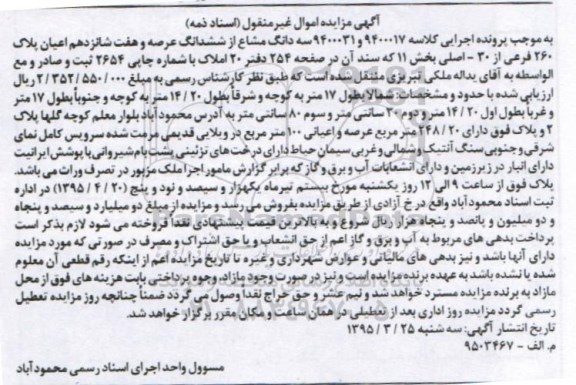 آگهی مزایده اموال غیرمنقول (اسناد ذمه)
به موجب پرونده اجرایی کلاسه ۹۴۰۰۰۱۷ و ۹۴۰۰۰۳۱ سه دانگ مشاع از ششدانگ عرصه و هفت شانزدهم اعیان پلاک
۲۶۰ فرعی از ۳۰ - اصلی بخش ۱۱ که سند آن در صفحه ۲۵۴ دفتر ۲۰ املاک با شماره چاپی ۲۶۵۴ ثبت و صادر و مع
الواسطه به آقای یداله ملکی تبریزی منتقل شده است که طبق نظر کارشناس رسمی به مبلغ ۲/۳۵۲/۵۵۰/۰۰۰ ریال
ارزیابی شده با حدود و مشخصات: شمالا بطول ۱۷ متر به کوچه و شرقاً بطول ۱۴/۲۰ متر به کوچه و جنوباً بطول ۱۷ متر
و غرباً بطول اول ۱۴/۲۰ متر و دوم ۲۰ سانتی متر و سوم ۸۰ سانتی متر به آدرس محمودآباد بلوار معلم کوچه گلها پلاک
۲ و پلاک فوق دارای ۲۴۸/۲۰ متر مربع عرصه و اعیانی ۱۰۰ متر مربع در ویلایی قدیمی مرمت شده سرویس کامل نمای
شرقی و جنوبی سنگ آنتیک و شمالی و غربی سیمان حیاط دارای درخت های تزئینی پشت بام شیروانی با پوشش ایرانیت
دارای انبار در زیرزمین و دارای انشعابات آب و برق و گاز که برابر گزارش مامور اجرا ملک مزبور در تصرف وراث می باشد.
پلاک فوق از ساعت ۹ الی ۱۲ روز یکشنبه مورخ بیستم تیرماه یکهزار و سیصد و نود و پنج (۱۳۹۵/۴/۲۰) در اداره
ثبت اسناد محمودآباد واقع در خ آزادی از طریق مزایده بفروش می رسد و مزایده از مبلغ دو میلیارد و سیصد و پنجاه
و دو میلیون و پانصد و پنجاه هزار ریال شروع و به بالاترین قیمت پیشنهادی نقدا فروخته می شود لازم بذکر است
پرداخت بدهی های مربوط به آب و برق و گاز اعم از حق انشعاب و یا حق اشتراک و مصرف در صورتی که مورد مزایده
دارای آنها باشد و نیز بدهی های مالیاتی و عوارض شهرداری و غیره تا تاریخ مزایده اعم از اینکه رقم قطعی آن معلوم
شده یا نشده باشد به عهده برنده مزایده است و نیز در صورت وجود مازاد وجوه پرداختی بابت هزینه های فوق از محل
مازاد به برنده مزایده مسترد خواهد شد و نیم عشر و حق حراج نقدا وصول می گردد ضمناً چنانچه روز مزایده تعطیل
رسمی گردد مزایده روز اداری بعد از تعطیلی در همان ساعت و مکان مقرر برگزار خواهد شد.
تاریخ انتشار آگهی: سه شنبه ۱۳۹۵/۳/۲۵
م. الف - ۹۵۰۳۴۶۷
مسوول واحد اجرای اسناد رسمی محمودآباد